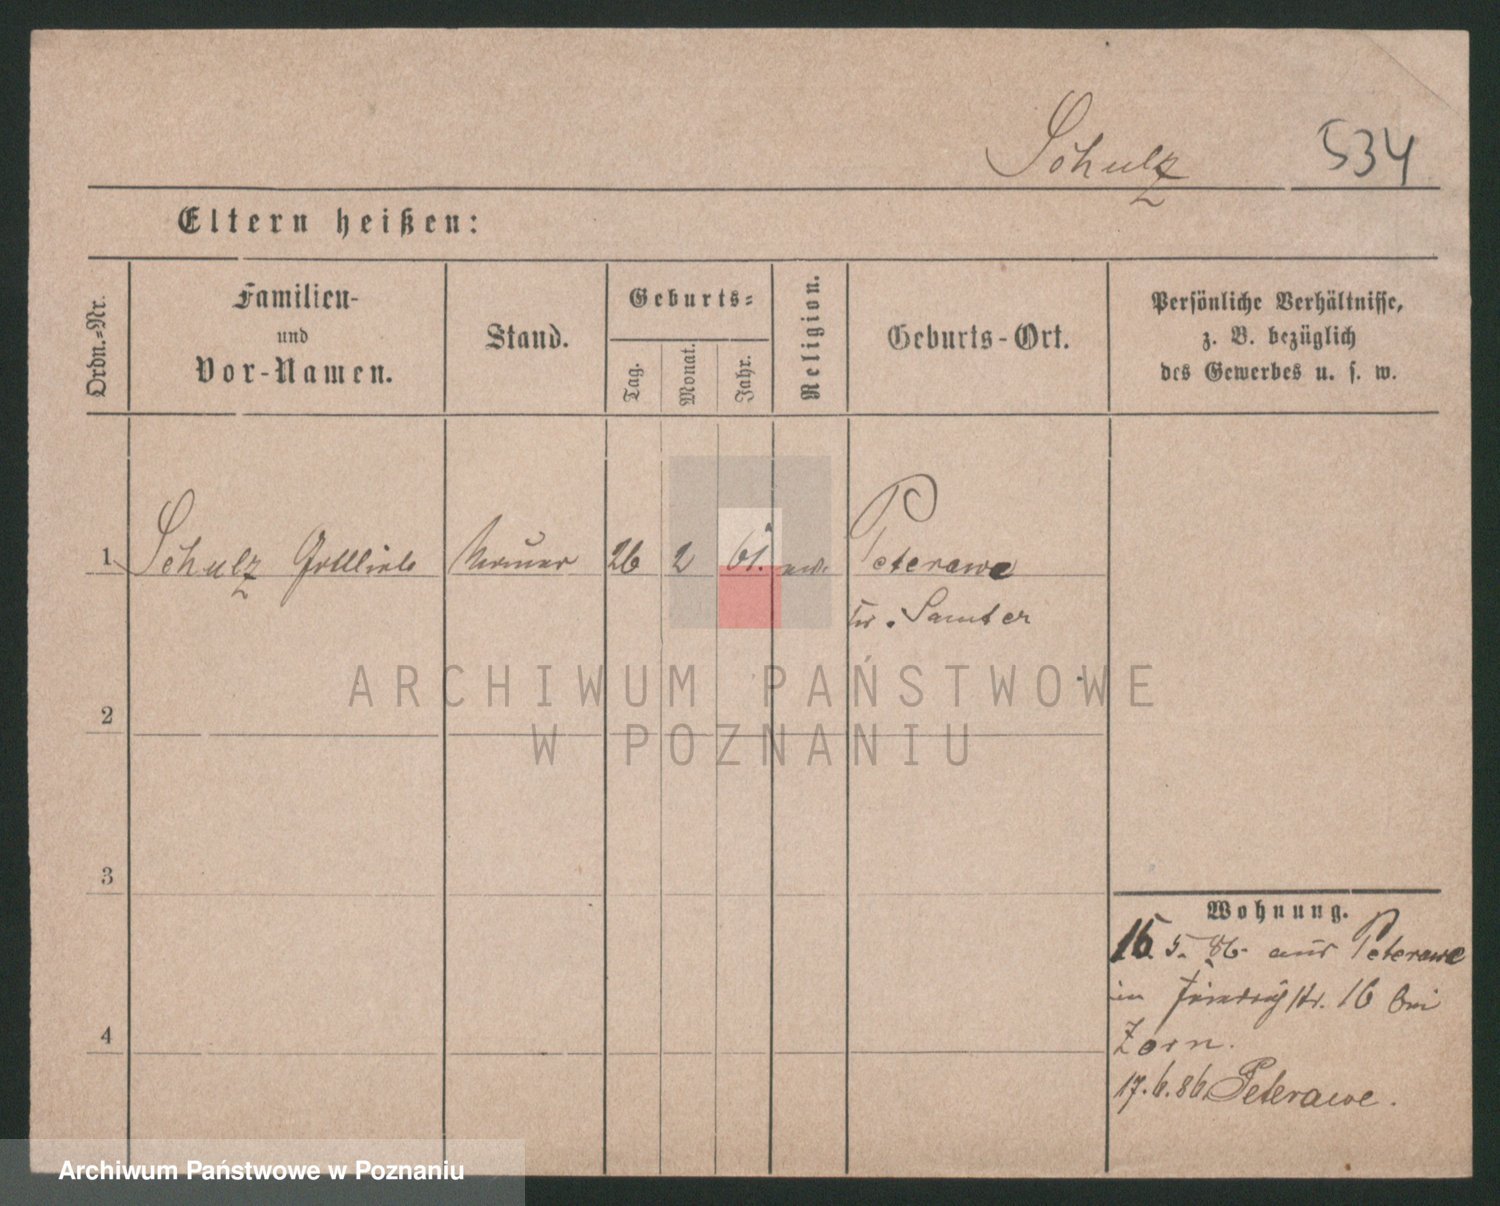 Schulz 534
Eltern heißen:
Ordn.-Nr.
Familien-
und
Vor-Namen.
Stand.
Geburts-
Tag.
Monat.
Jahr.
Religion.
Geburts-Ort.
Persönliche Verhältnisse,
z. B. bezüglich
des Gewerbes u. s. w.
1 Schulz Gottlieb 26 2 61. Peterawe
Kr. Samter
ARCHIWUM PAŃSTWOWE
W POZNANIU
2
3
4
Wohnung.
16. 5. 86. aus Peterawe
in Friedrichstr. 16 bei
Zorn.
17.6.86. Peterawe.
Archiwum Państwowe w Poznaniu